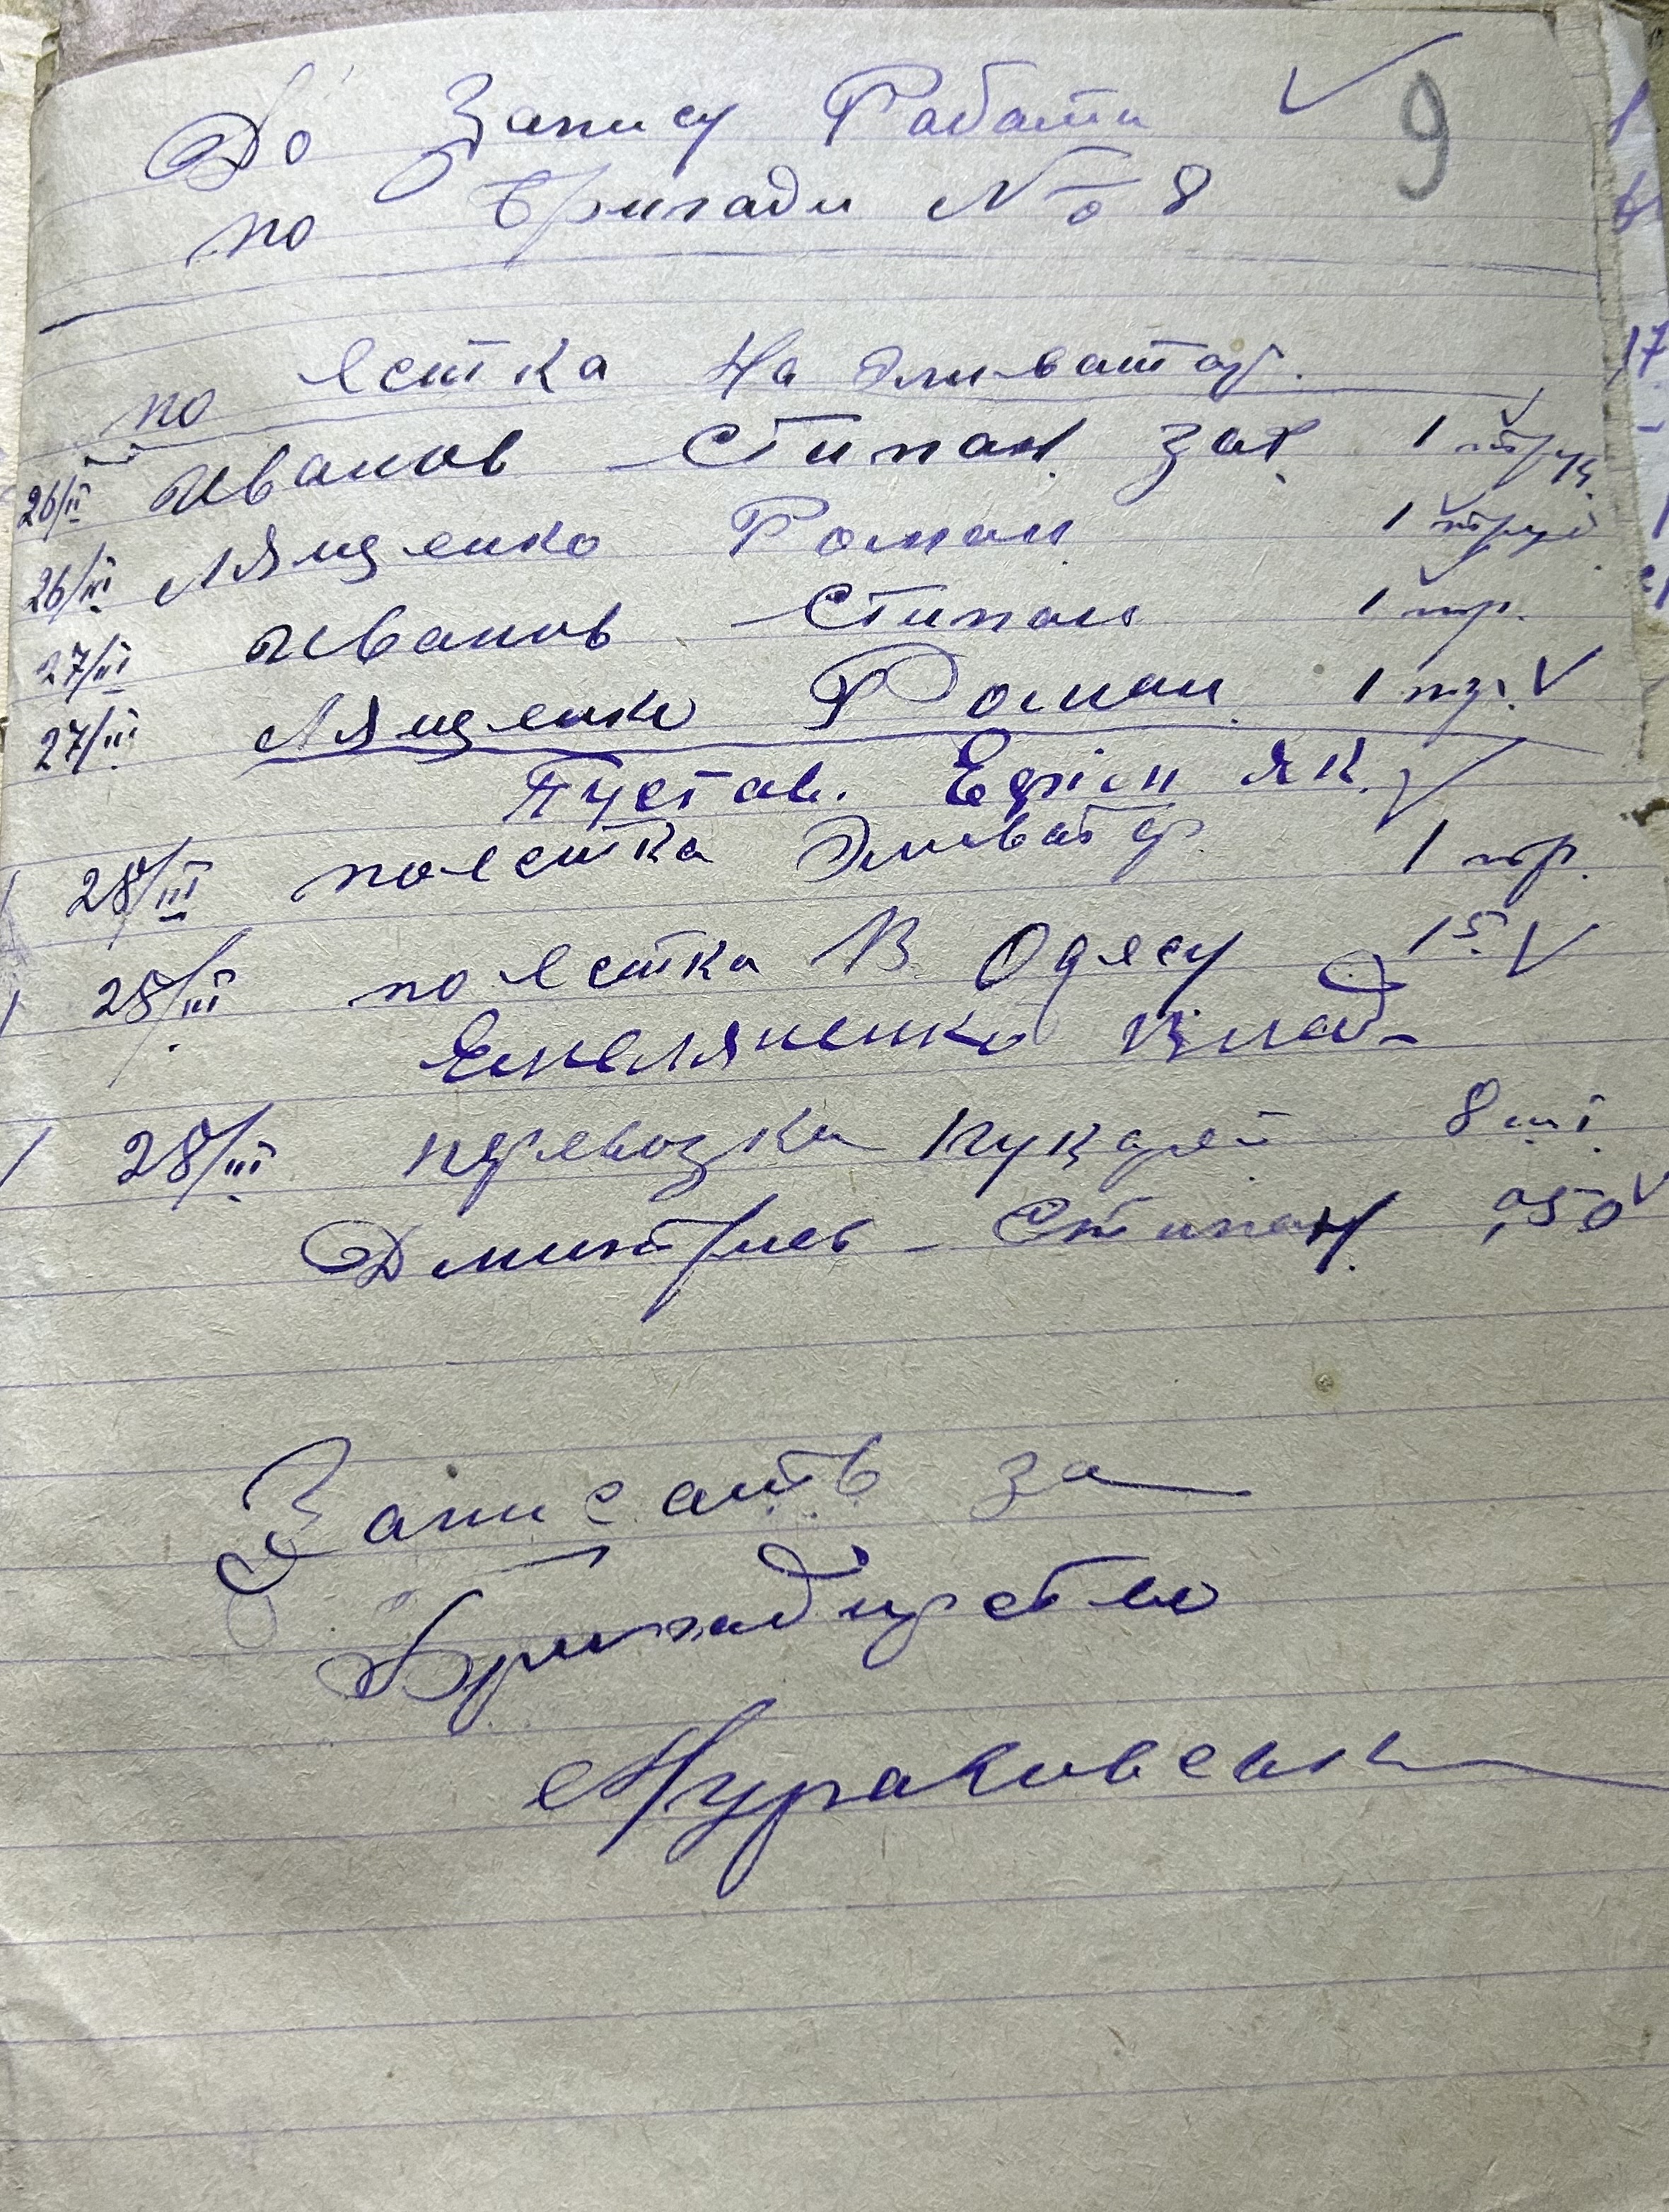 До Запису Работи 9
по Бригади № 8
поєстка На Эливатор.
26/III Иванов Стипан Зах. 1 труд.
26/III Лященко Роман 1 труд.
27/III Иванов Стипан 1 тр.
27/III Лященко Роман 1 тр.
Пустав. Ефім Як.
28/III поєстка Эливатор 1 тр.
28/III поєстка В Одесу 15
Емеляненко Влад
28/III перевозка
Дмитриев Стипан 0,50
Записать за
Бригадирство